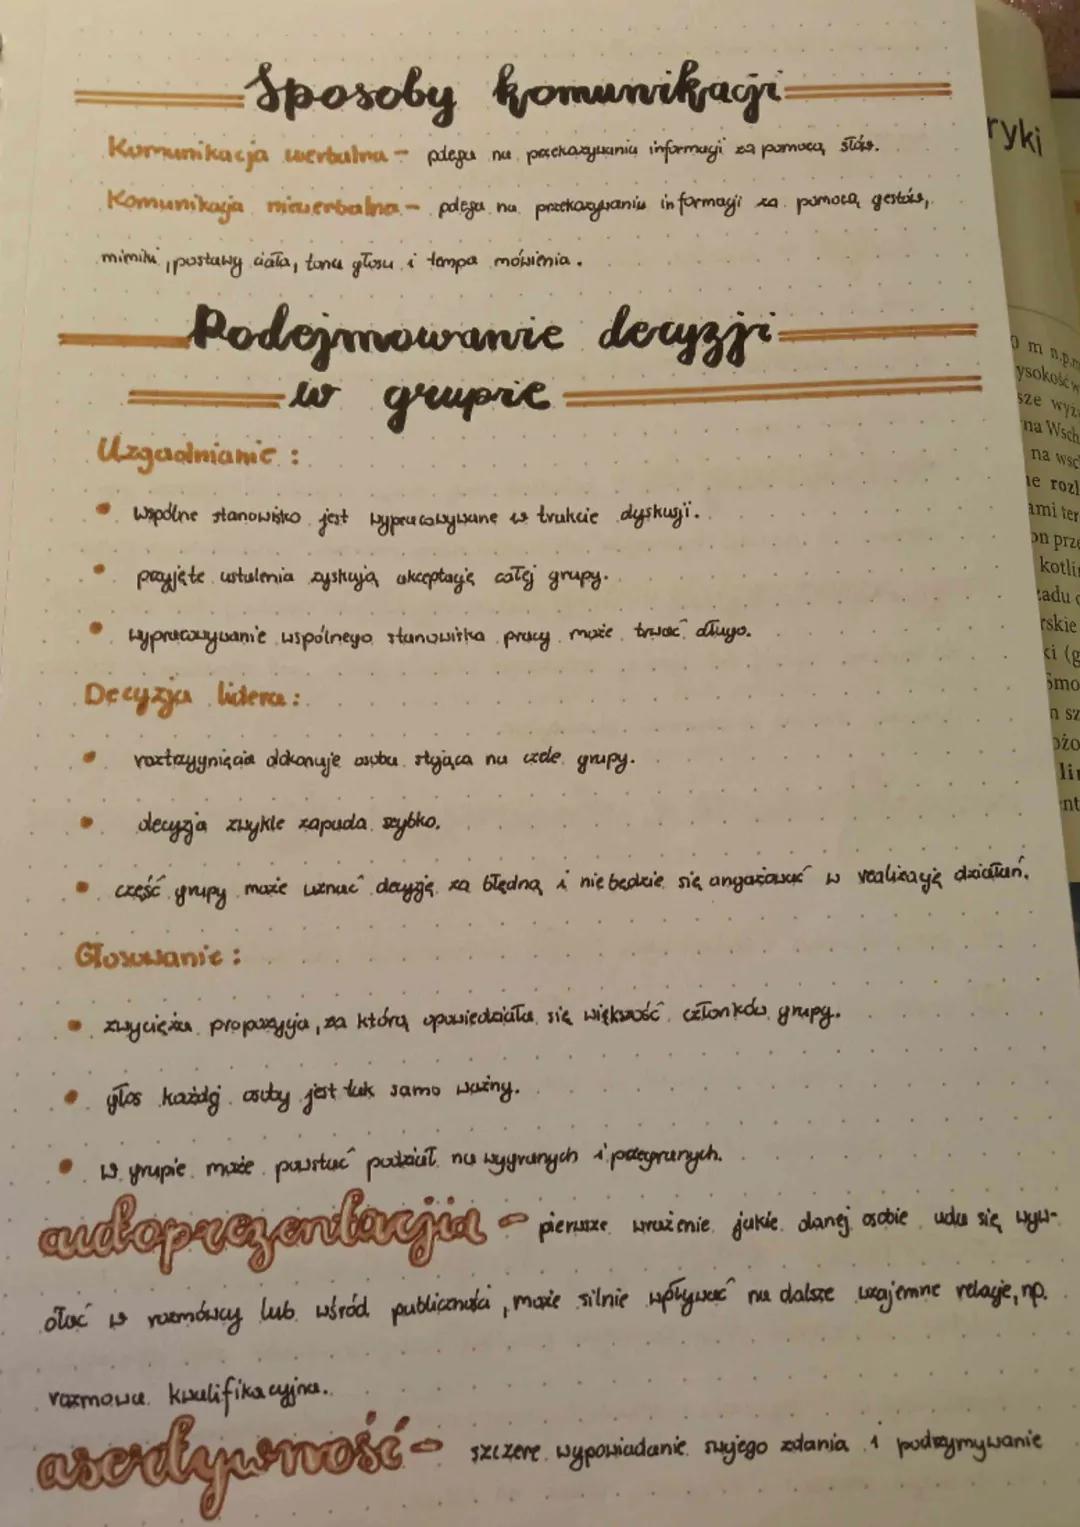 Sposoby komunikacji
Komunikacja werbalna - polega na przekazywaniu informacji za pomocą słów.
Komunikacja niewerbalna - polega na przekazywaniu informacji za pomocą gestów,
mimiki, postawy ciała, tonu głosu i tempa mówienia.
Podejmowanie decyzji
w grupie
Uzgadnianie:
• wspólne stanowisko jest wypracowywane w trakcie dyskusji.
• przyjęte ustalenia zyskują akceptację całej grupy.
• wypracowywanie wspólnego stanowiska pracy może trwać długo.
Decyzja lidera:
• roztrzygnięcia dokonuje osoba stojąca na czele grupy.
• decyzja zwykle zapada szybko.
• część grupy może uznać decyzję za błędną i nie będzie się angażować w realizację działań.
Głosowanie:
• zwycięża propozycja, za którą opowiedziała się większość członków grupy.
• głos każdej osoby jest tak samo ważny.
• w grupie może powstać podział na wygranych i przegranych.
autoprezentacja - pierwsze wrażenie jakie danej osobie uda się wyw-
ołać w rozmówcy lub wśród publiczności, może silnie wpływać na dalsze wzajemne relacje, np.
rozmowa kwalifikacyjna.
asertywność - szczere wypowiadanie swojego zdania i podtrzymywanie
ryki
m n.p.m
ysokość w
sze wyż
na Wsch
na wsc
ne rozl
ami ter
on prze
kotli
zadu
rskie
ki (g
Smo
n sz
ożo
lin
ent